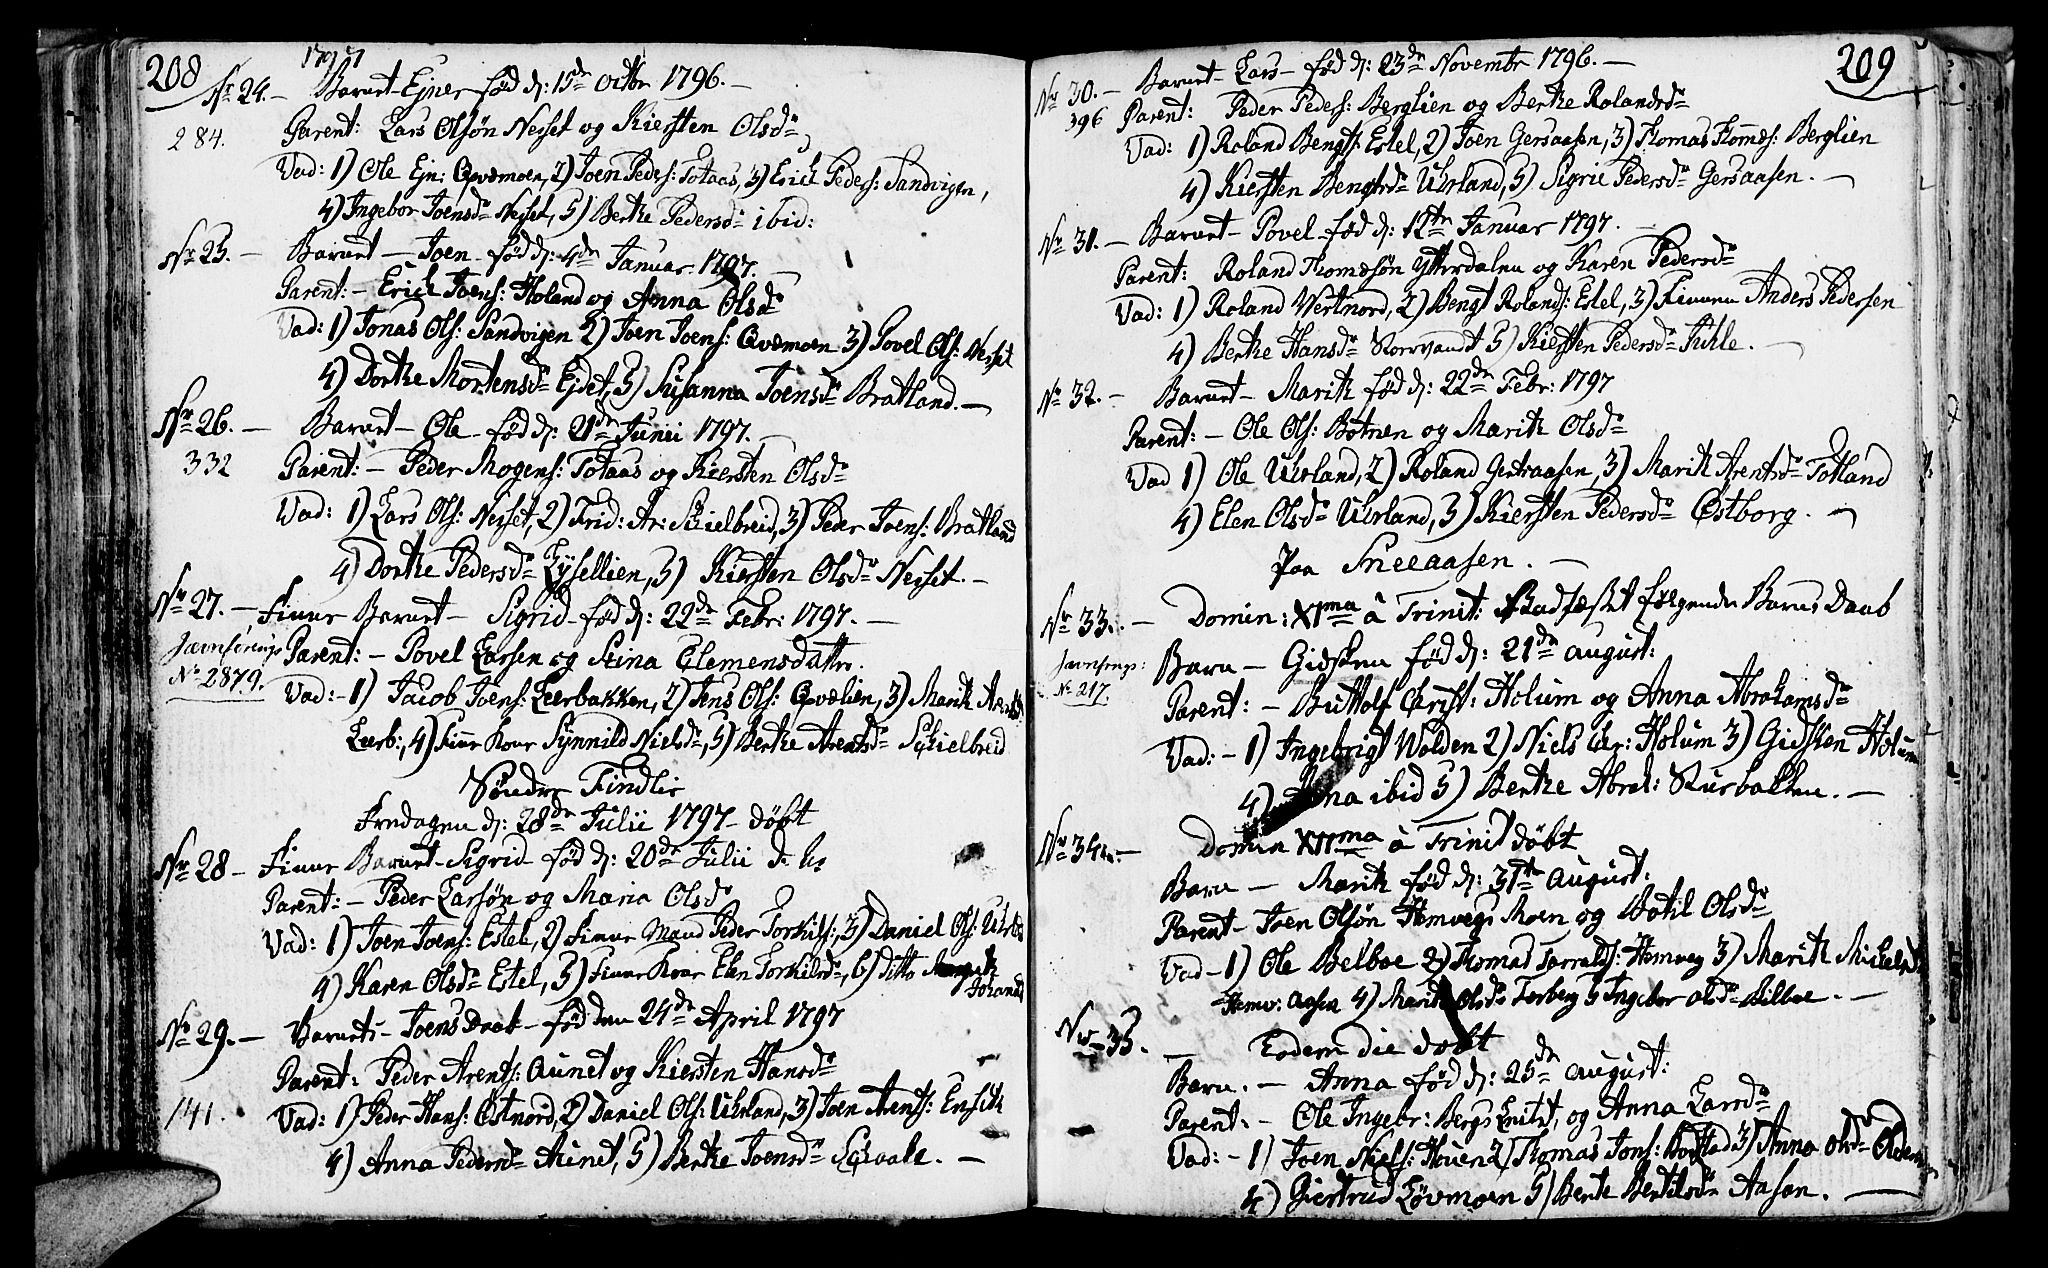 208
1797
Nr 24. – Barnet – Ejner fød d: 15de Octbr 1796. –
284. Parent: Lars Olsøn Nesset og Kiersten Olsdr
Vad: 1) Ole Ejn: Qvæmoen, 2) Joen Peders: Totaas, 3) Erich Peders: Sandvigen,
4) Ingebor Joensdr Nesset, 5) Berthe Pedersdr ibid:
Nr 25. – Barnet – Joen – fød d: 4de Januar 1797. –
Parent: – Erich Joens: Holand og Anna Olsdr
Vad: 1) Jonas Ols: Sandvigen 2) Joen Joens: Qvæmoen 3) Povel Ols: Nesset
4) Dorthe Mortensdr Ejdet, 5) Susanna Joensdr Bratland. –
Nr 26. – Barnet – Ole – fød d: 21de Junii 1797.
332 Parent: – Peder Mogens: Totaas og Kiersten Olsdr
Vad: 1) Lars Ols: Nesset, 2) Frid: Ar: Skielbreid, 3) Peder Joens: Bratland
4) Dorthe Pedersdr Lysellien, 5) Kiersten Olsdr Nesset. –
Nr 27. – Finne Barnet – Sigrid – fød d: 22de Febr: 1797. –
Jævnførings Parent: – Povel Larsen og Stina Clemensdatter.
No 2879. Vad: – 1) Jacob Joens: Leerbakken, 2) Jens Ols: Qvælien, 3) Marith
Leerb:, 4) Finne Kone Synnild Nielsdr, 5) Berthe Arentsdr Skielbreid
Søndre Findlie
Fredagen d: 28de Julii 1797 – døbt
Nr 28 – Finne Barnet – Sigrid – fød d: 20de Julii
Parent: – Peder Larsøn og Maria Olsdr
Vad: 1) Joen Joens: Estel, 2) Finne Mand Peder Torkils:, 3) Daniel Ols:
4) Karen Olsdr Estel, 5) Finne Kone Elen Torkilsdr, 6) ditto
Nr 29. – Barnets – Joens Daab – fød den 24de April 1797
Parent: Peder Arents: Aunet og Kiersten Hansdr
141. Vad: 1) Peder Hans: Østnord, 2) Daniel Ols: Uhrland, 3) Joen Arents:
4) Anna Pedersdr Aunet, 5) Berthe Joensdr
209
Nr 30. – Barnet – Lars – fød d: 23de Novembr 1796. –
396 Parent: Peder Peders: Berglien og Berthe Rolandsdr
Vad: 1) Roland Bengts: Estel, 2) Joen Gersaasen, 3) Thomas Thomæs: Berglien
4) Kiersten Bengtsdr Uhrland, 5) Sigrie Pedersdr Gersaasen. –
Nr 31. – Barnet – Povel – fød d: 12te Januar 1797. –
Parent: Roland Thomæsøn Ytterdalen og Karen Pedersdr
Vad: 1) Roland Vestnord, 2) Bengt Rolands: Estel, 3) Finnen Anders Pedersen
4) Berthe Hansdr 5) Kiersten Pedersdr
Nr 32. – Barnet – Marith fød d: 22de Febr: 1797
Parent: – Ole Ols: Botnen og Marith Olsdr
Vad 1) Ole Uhrland, 2) Roland Gersaasen, 3) Marith Arentsdr Totland
4) Elen Olsdr Uhrland, 5) Kiersten Pedersdr Østborg. –
Paa Sneeaasen. –
Nr 33. – Domin: XIma à Trinit: Stadfæstet følgende Barns Daab
Jævnførings: Barn – Gidsken fød d: 21de August:
No 217. Parent: – Buttolf Christ: Holum og Anna Abrahamsdr
Vad: – 1) Ingebrigt Wolden 2) Niels Chr: Holum 3) Gidsken Holum
4) Anna ibid 5) Berthe Abrah: Kursbakken. –
Nr 34. – Domin XIIma à Trinit døbt
Barn – Marith fød d: 31te August:
Parent – Joen Olsøn Hemvegs Moen og Botil Olsdr
Vad – 1) Ole Belboe 2) Thomas Torralds: Hemveg 3) Marith Michelsdr
Hemv: Aasen 4) Marith Olsdr Forberg 5 Ingebor Olsdr Bilboe. –
Nr 35. – Eodem die døbt
Barn. – Anna fød d: 25de August:
Parent. – Ole Ingebr: Bergs Eiet, og Anna Larsdr
Vad: – 1) Joen Niels: Hoven 2) Thomas Jons: 3) Anna Olsdr
4) Giertrud Løvmoen 5) Berte Bertilsdr Aasen. –